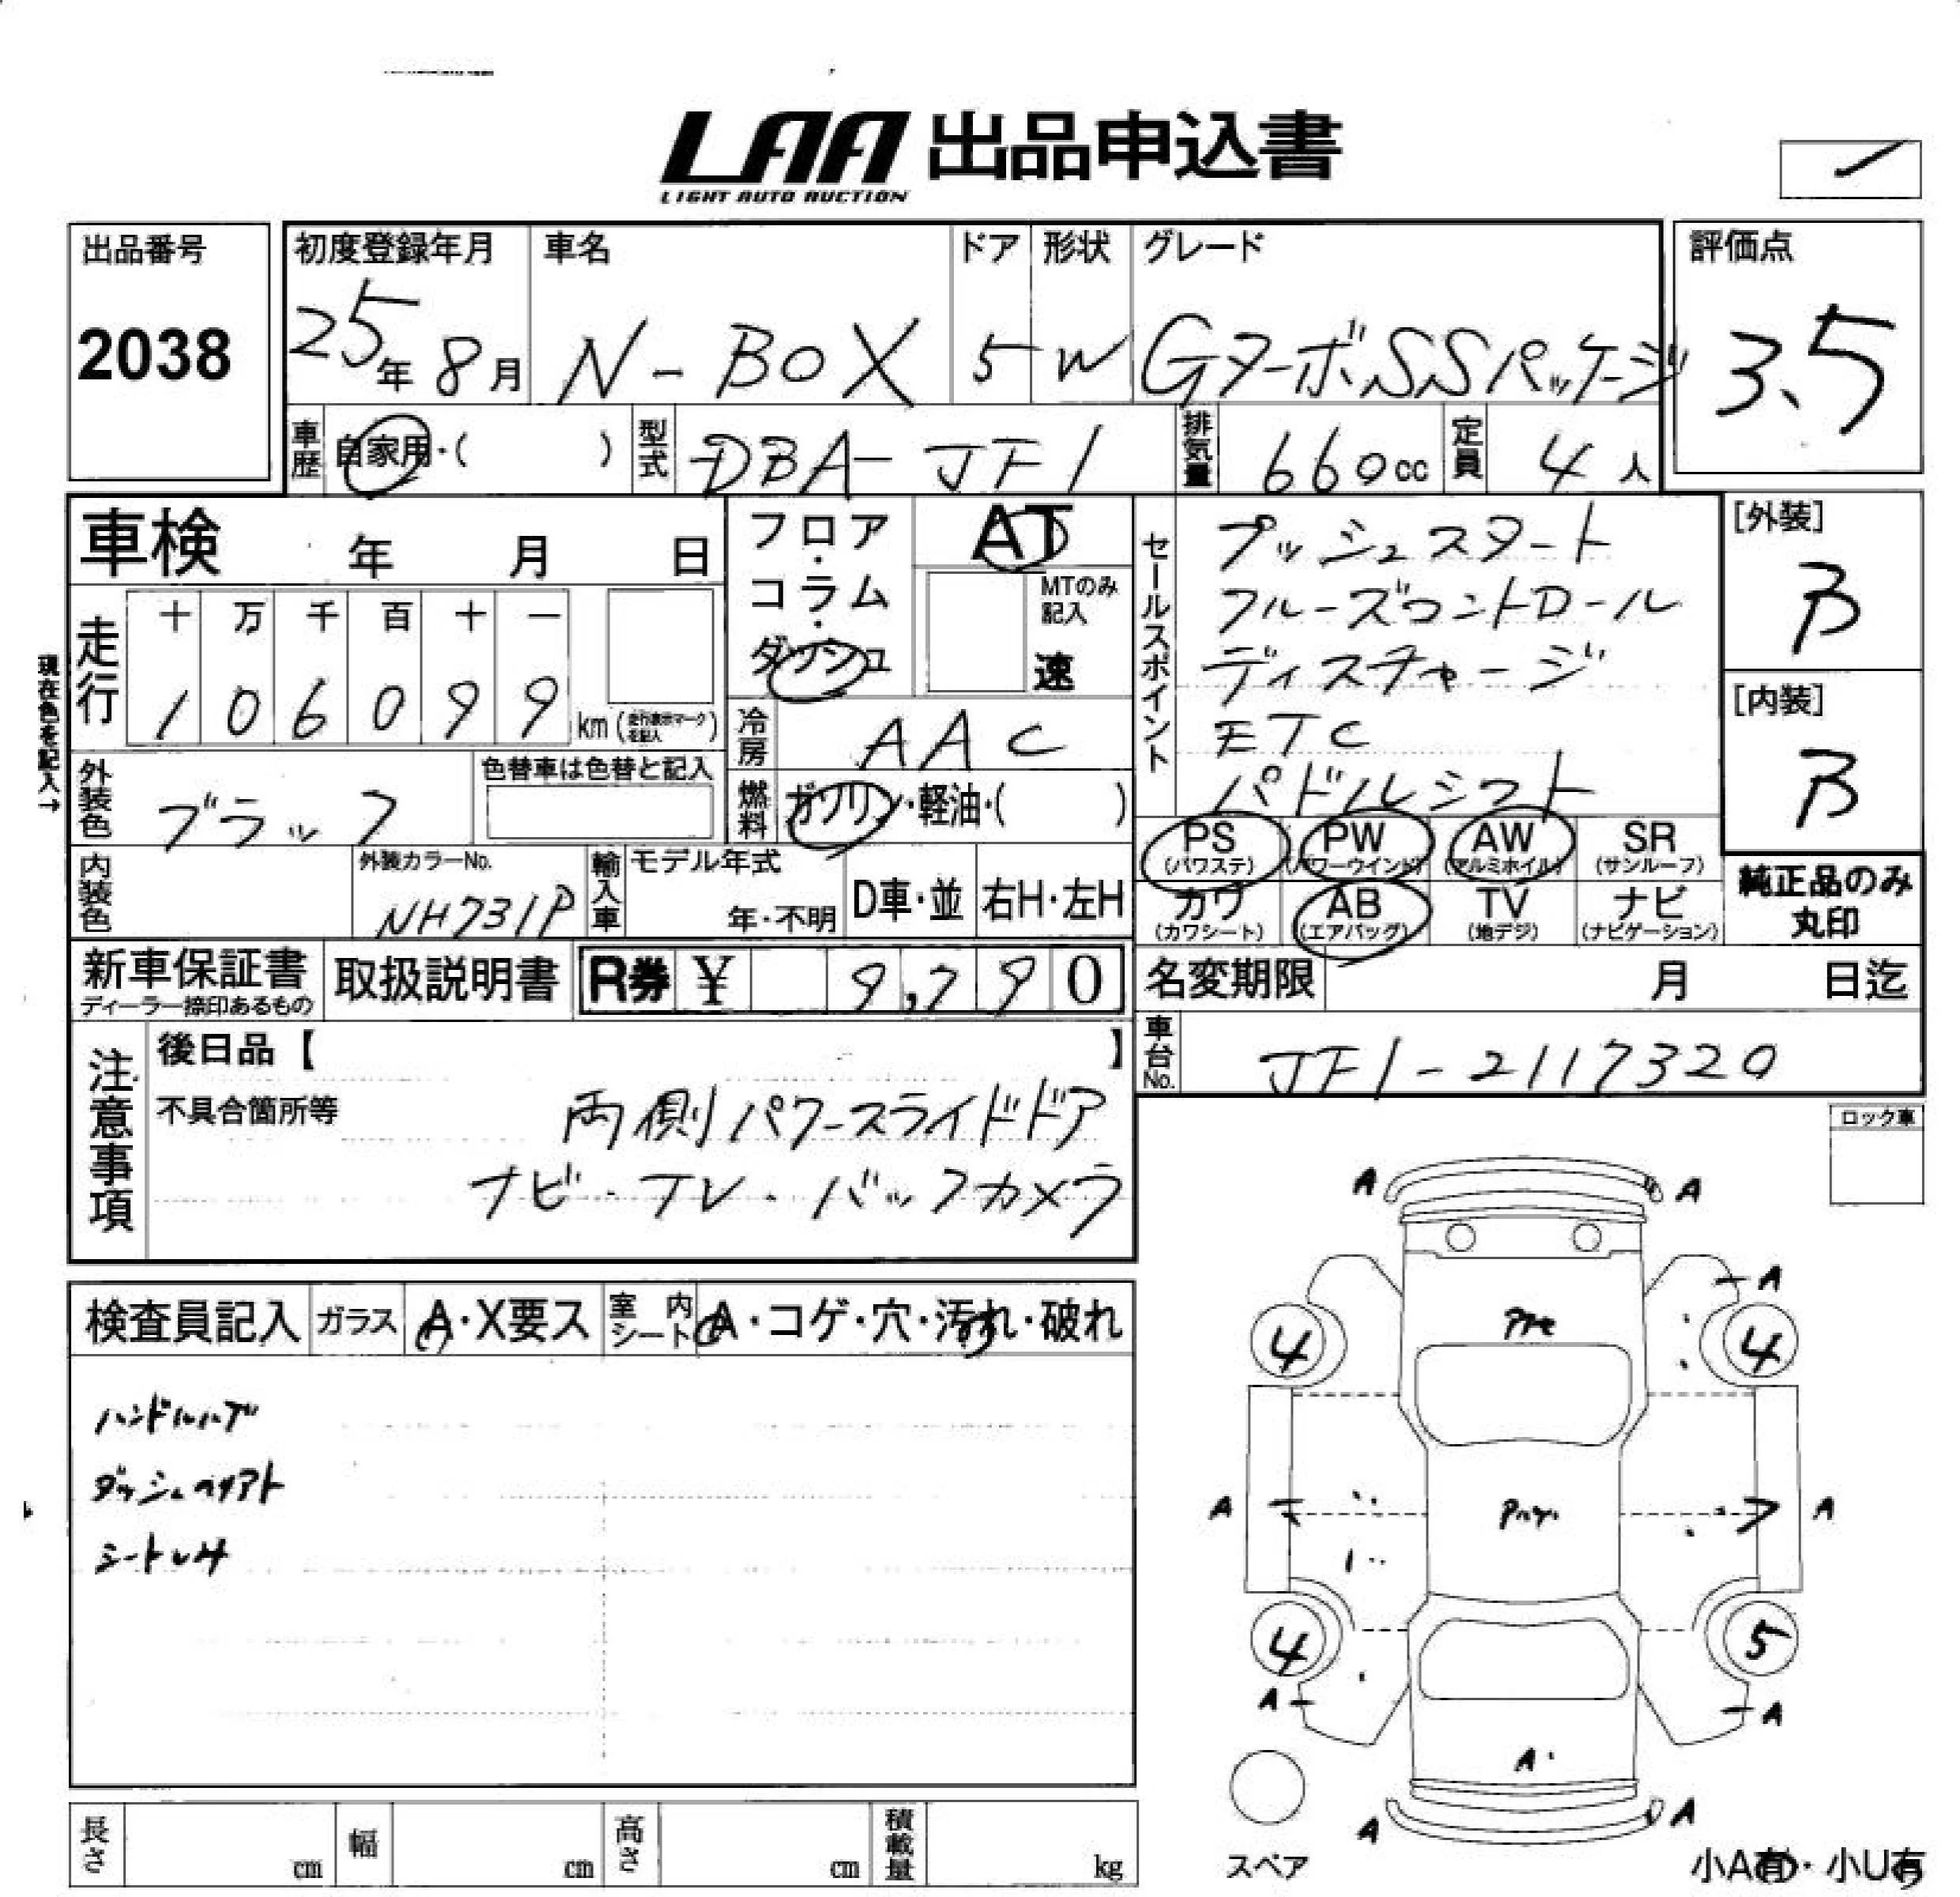 LAA 出品申込書
LIGHT AUTO AUCTION
出品番号
2038
初度登録年月
25年 8月
車名
N-BOX
ドア
5
形状
W
グレード
GターボSSパッケージ
評価点
3.5
車歴
自家用・( )
型式
DBA-JF1
排気量
660cc
定員
4人
車検 年 月 日
フロア・コラム・ダッシュ
AT
MTのみ記入
速
セールスポイント
プッシュスタート
クルーズコントロール
ディスチャージ
ETC
パドルシフト
[外装]
B
[内装]
B
現在色を記入→
走行
十 万 千 百 十 一
1 0 6 0 9 9
km (走行表示マークを記入)
冷房
AAC
外装色
ブラック
色替車は色替と記入
燃料
ガソリン・軽油・( )
PS (パワステ)
PW (パワーウインド)
AW (アルミホイル)
SR (サンルーフ)
カワ (カワシート)
AB (エアバッグ)
TV (地デジ)
ナビ (ナビゲーション)
純正品のみ
丸印
内装色
外装カラーNo.
NH731P
輸入車
モデル年式
年・不明
D車・並
右H・左H
新車保証書
ディーラー捺印あるもの
取扱説明書
R券 ¥ 9,790
名変期限 月 日迄
車台No.
JF1-2117320
注意事項
後日品【 】
不具合箇所等
両側パワースライドドア
ナビ・TV・バックカメラ
ロック車
検査員記入
ガラス
A・X要ス
室内シート
A・コゲ・穴・汚れ・破れ
ダッシュ
シート
A A
A
4 4
A A
4 5
A A
A
A A
スペア
小A有・小U有
長さ cm
幅 cm
高さ cm
積載量 kg